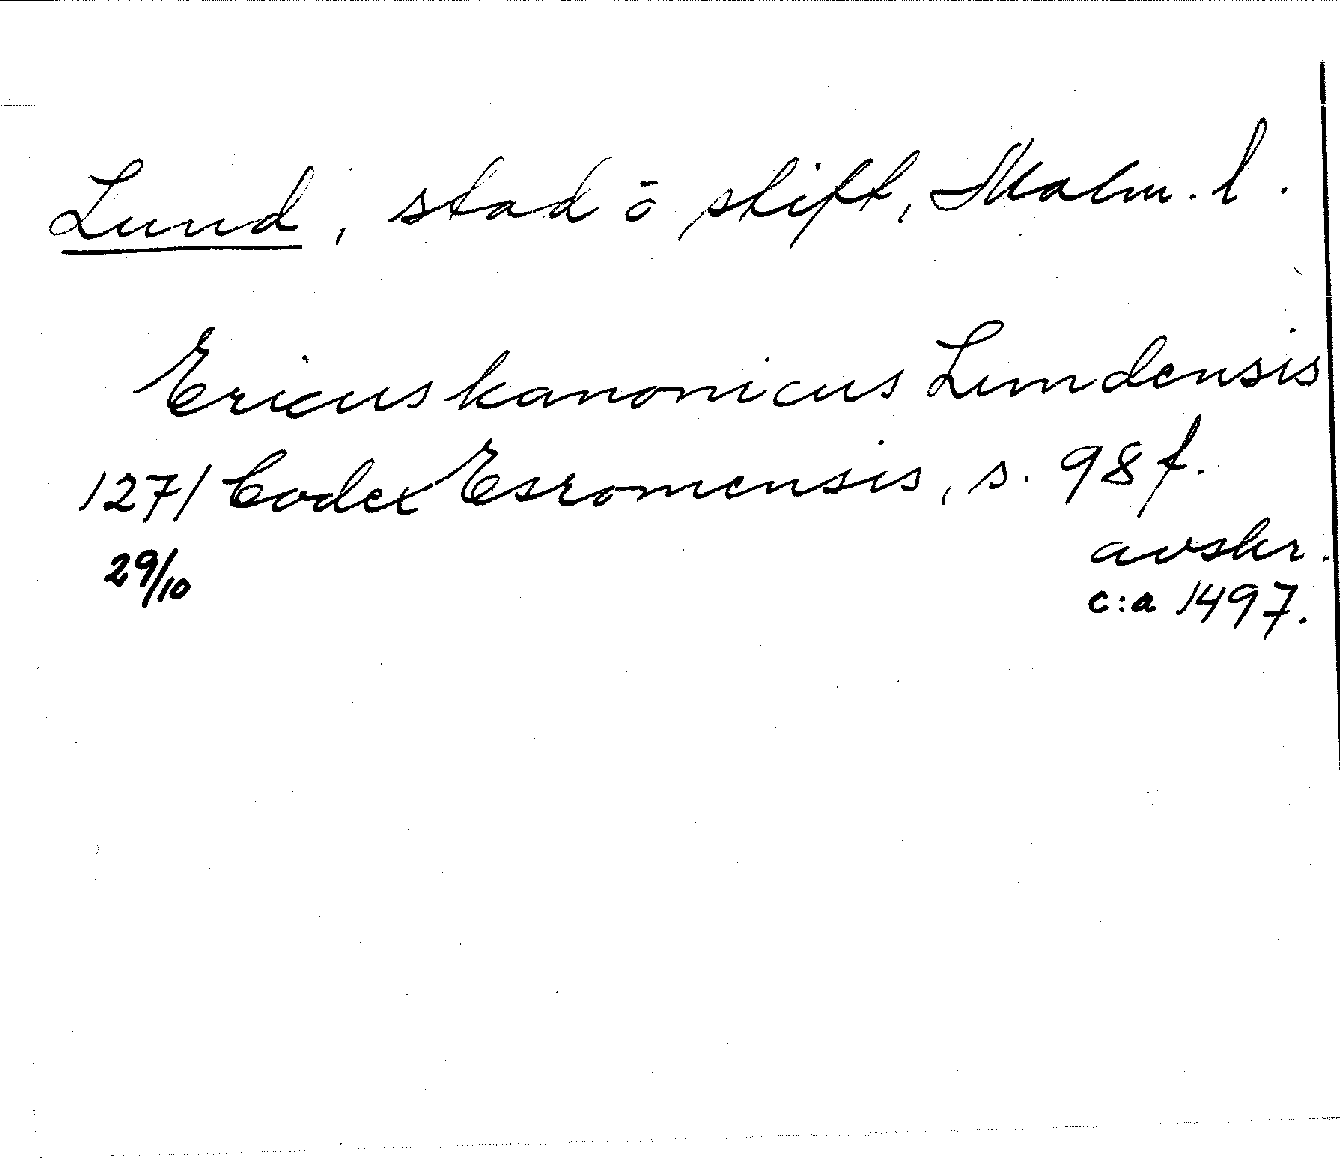 Lund, stad o stift, Malm. l.
Ericus kanonicus Lundensis
1271 Codex Esromensis, s. 98 f.
29/10
avskr.
c:a 1497.